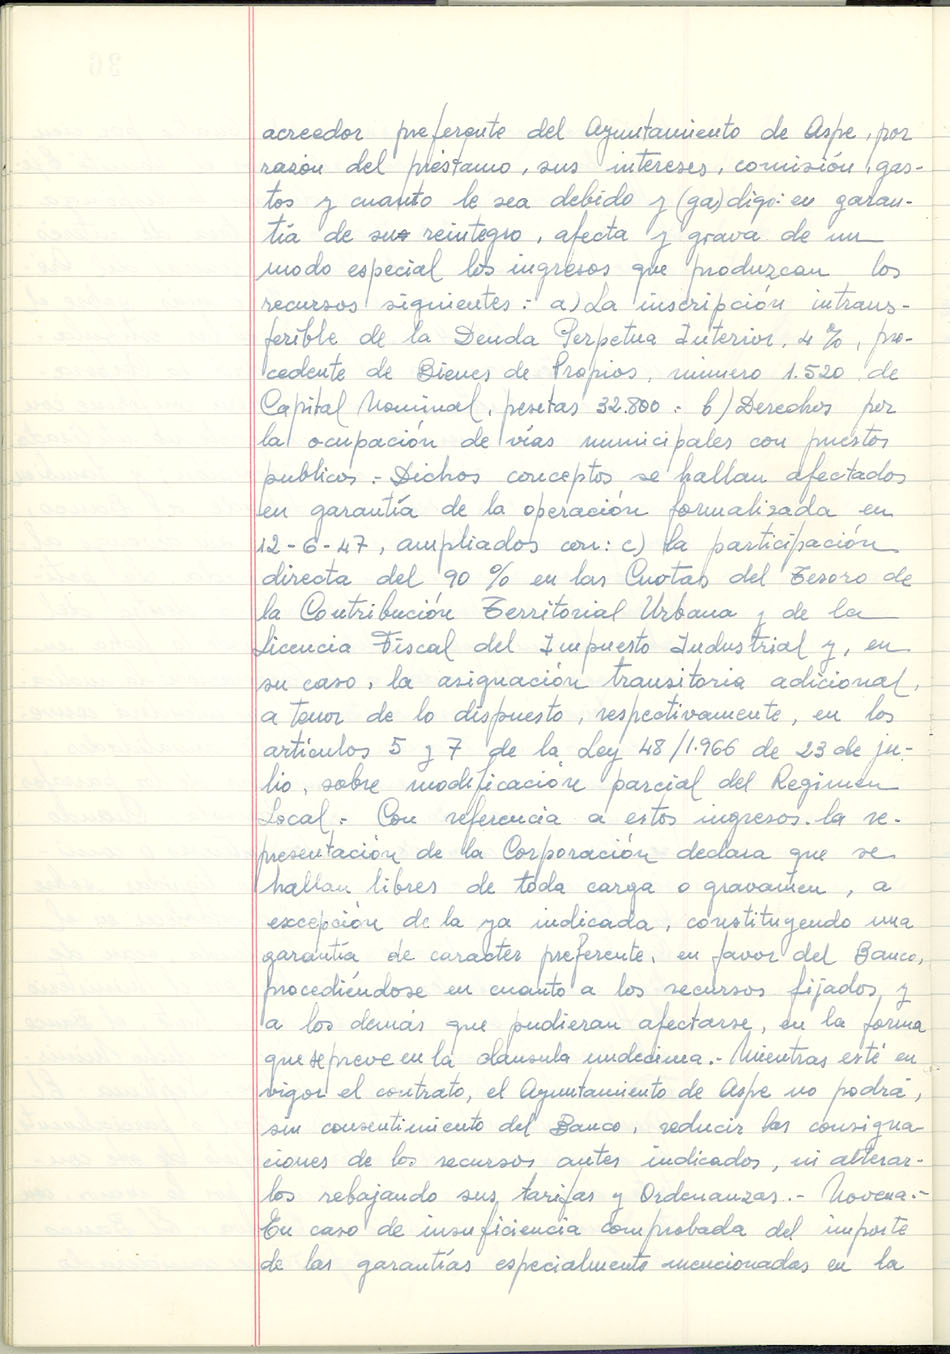 acreedor preferente del Ayuntamiento de Aspe, por
razón del préstamo, sus intereses, comisión, gas-
tos y cuanto le sea debido y (ga) digo: en garan-
tía de su reintegro, afecta y grava de un
modo especial los ingresos que produzcan los
recursos siguientes: a) La inscripción intrans-
ferible de la Deuda Perpetua Interior, 4%, pro-
cedente de Bienes de Propios, número 1.520 de
Capital Nominal, pesetas 32.800.- b) Derechos por
la ocupación de vías municipales con puestos
publicos.- Dichos conceptos se hallan afectados
en garantía de la operación formalizada en
12-6-47, ampliados con: c) la participación
directa del 90% en las Cuotas del Tesoro de
la Contribución Territorial Urbana y de la
Licencia Fiscal del Impuesto Industrial y, en
su caso, la asignación transitoria adicional,
a tenor de lo dispuesto, respectivamente, en los
artículos 5 y 7 de la Ley 48/1.966 de 23 de ju-
lio, sobre modificación parcial del Regimen
Local.- Con referencia a estos ingresos. la re-
presentación de la Corporación declara que se
hallan libres de toda carga o gravamen, a
excepción de la ya indicada, constituyendo una
garantía de caracter preferente, en favor del Banco,
procediéndose en cuanto a los recursos fijados y
a los demás que pudieran afectarse, en la forma
que se preve en la clausula undecima.- Mientras esté en
vigor el contrato, el Ayuntamiento de Aspe no podrá,
sin consentimiento del Banco, reducir las consigna-
ciones de los recursos antes indicados, ni alterar-
los rebajando sus tarifas y Ordenanzas.- Novena.-
En caso de insuficiencia comprobada del importe
de las garantías especialmente mencionadas en la